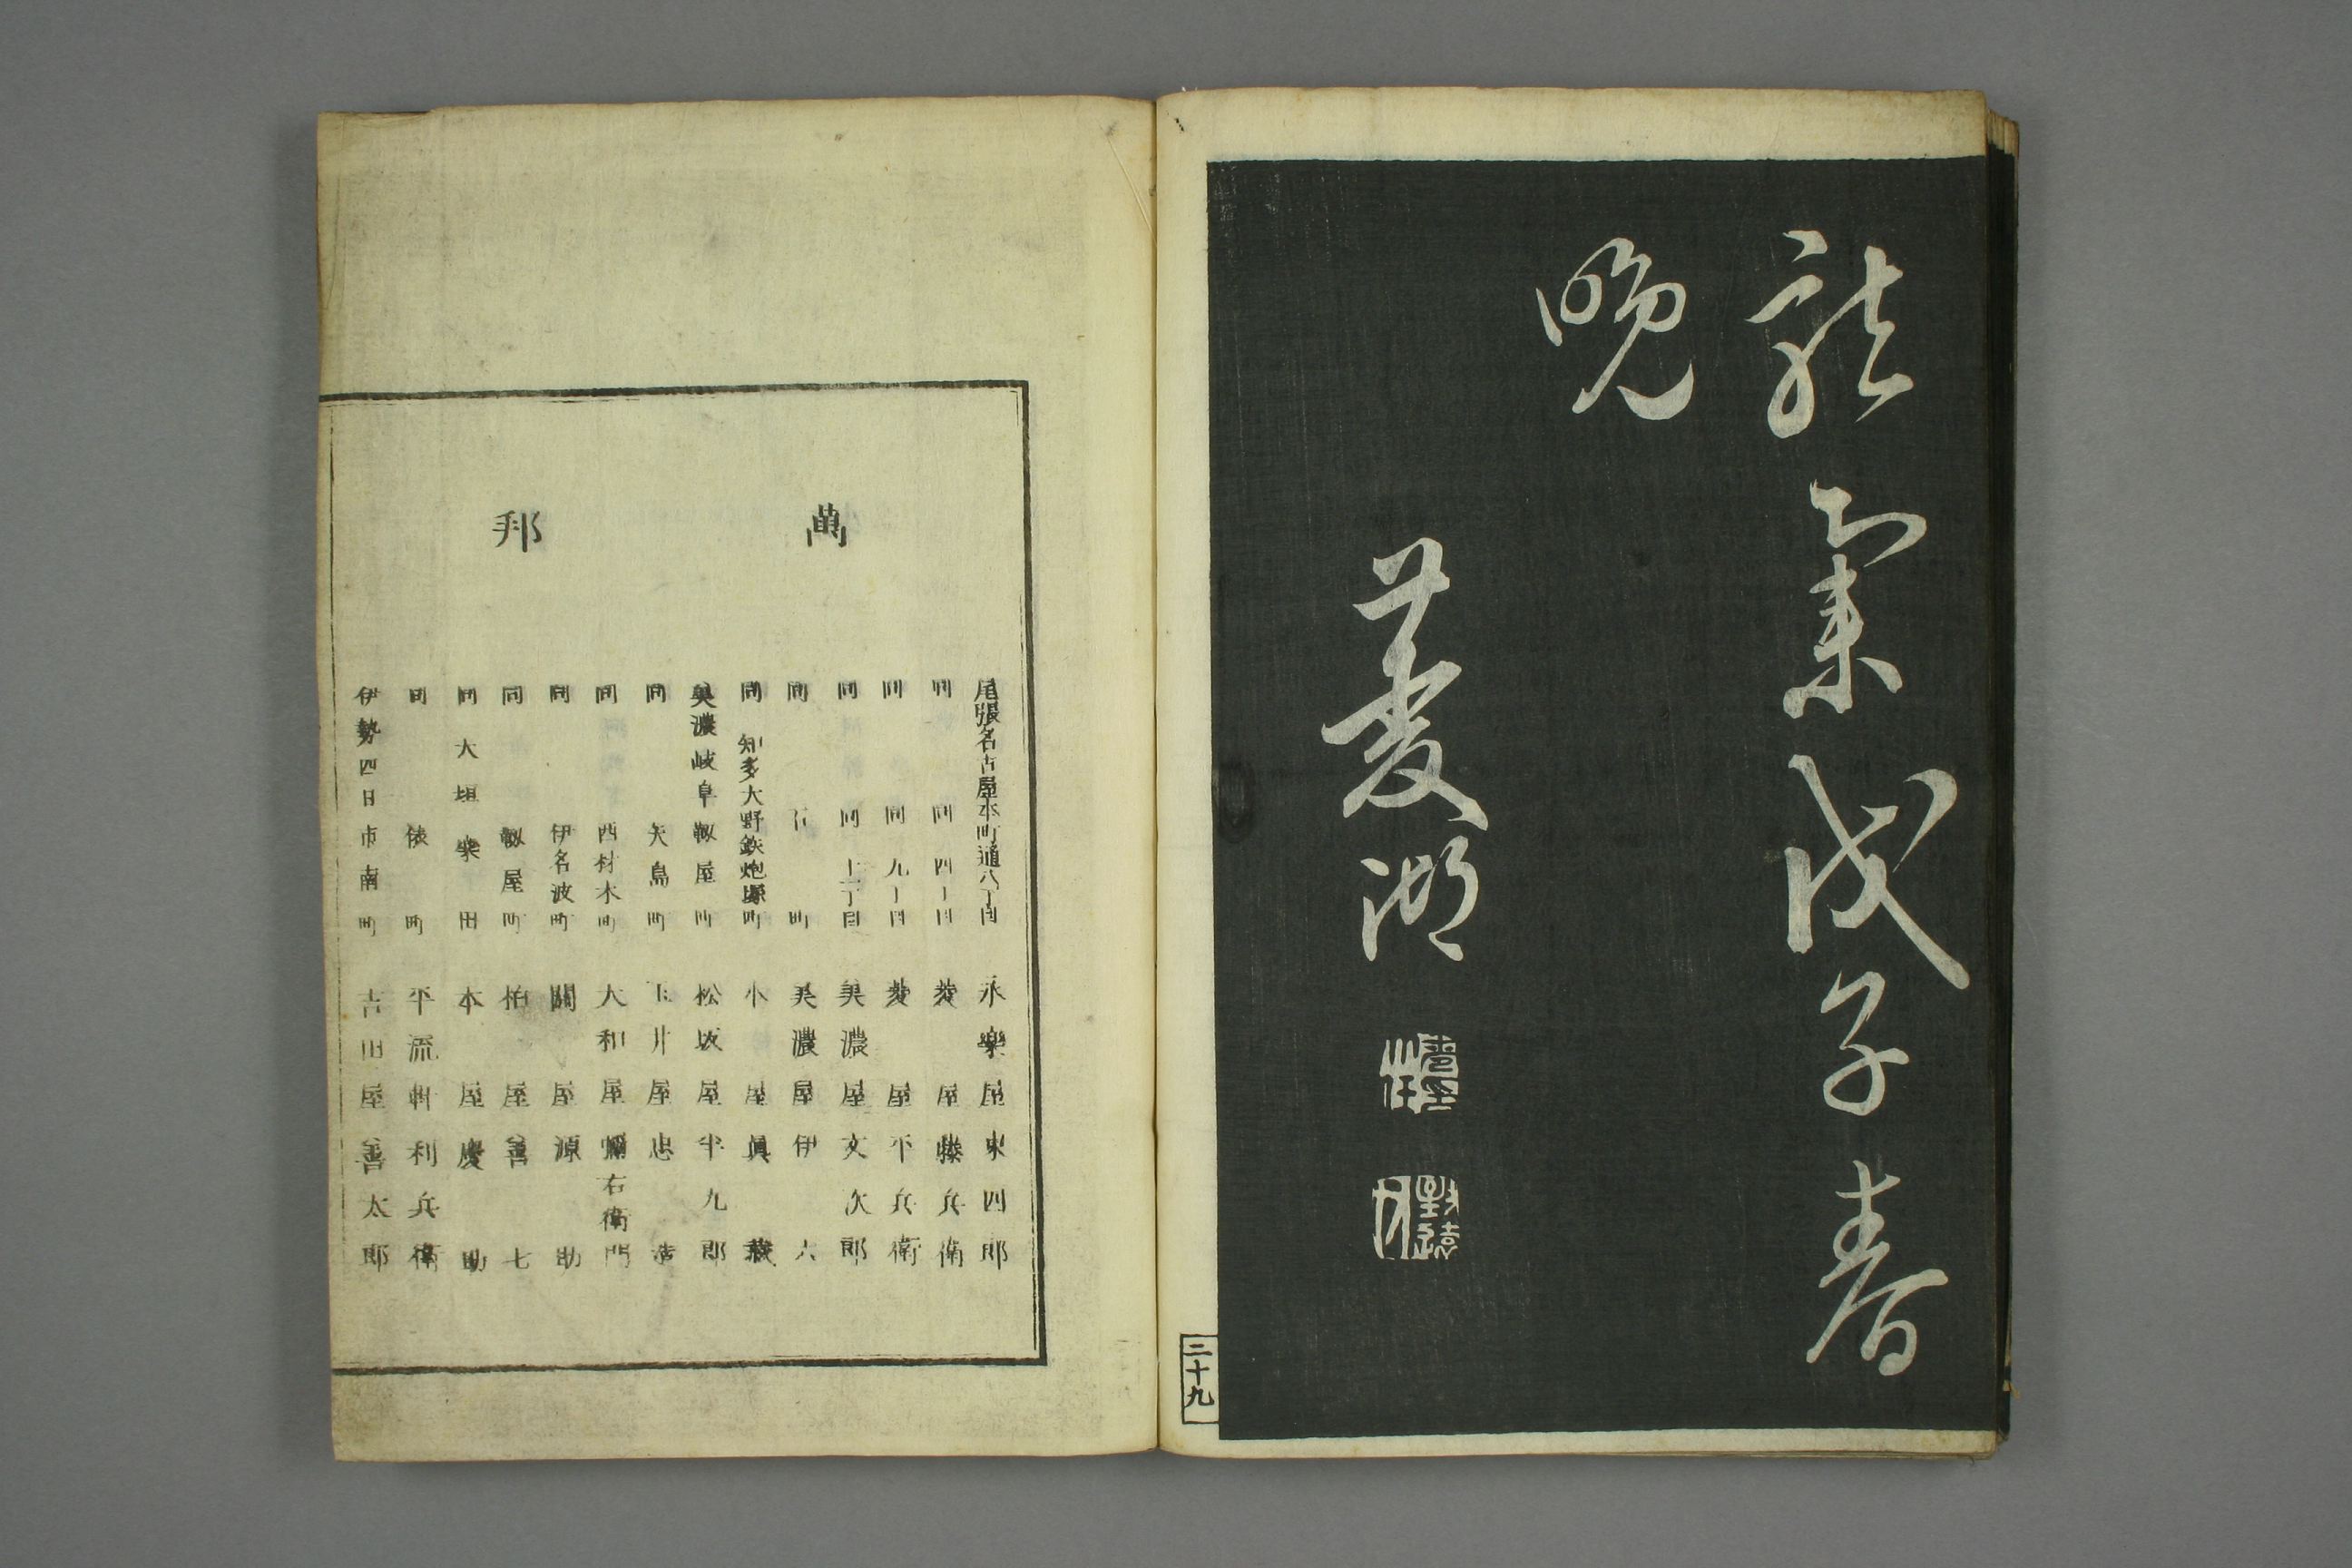 龍集戊子春
晩
菱湖
二十九
萬邦
尾張名古屋本町通八丁目 永樂屋東四郎
同 同四丁目 菱屋藤兵衛
同 同九丁目 菱屋平兵衛
同 同十一丁目 美濃屋文次郎
同 町 美濃屋伊六
同 知多大野鉄炮町 小屋眞藏
美濃岐阜靱屋町 松坂屋半九郎
同 矢島町 玉井屋忠造
同 西材木町 大和屋彌右衛門
同 伊名波町 關屋源助
同 靱屋町 柏屋善七
同 大垣 田 本屋慶助
同 俵町 平流軒利兵衛
伊勢四日市南町 吉田屋善太郎